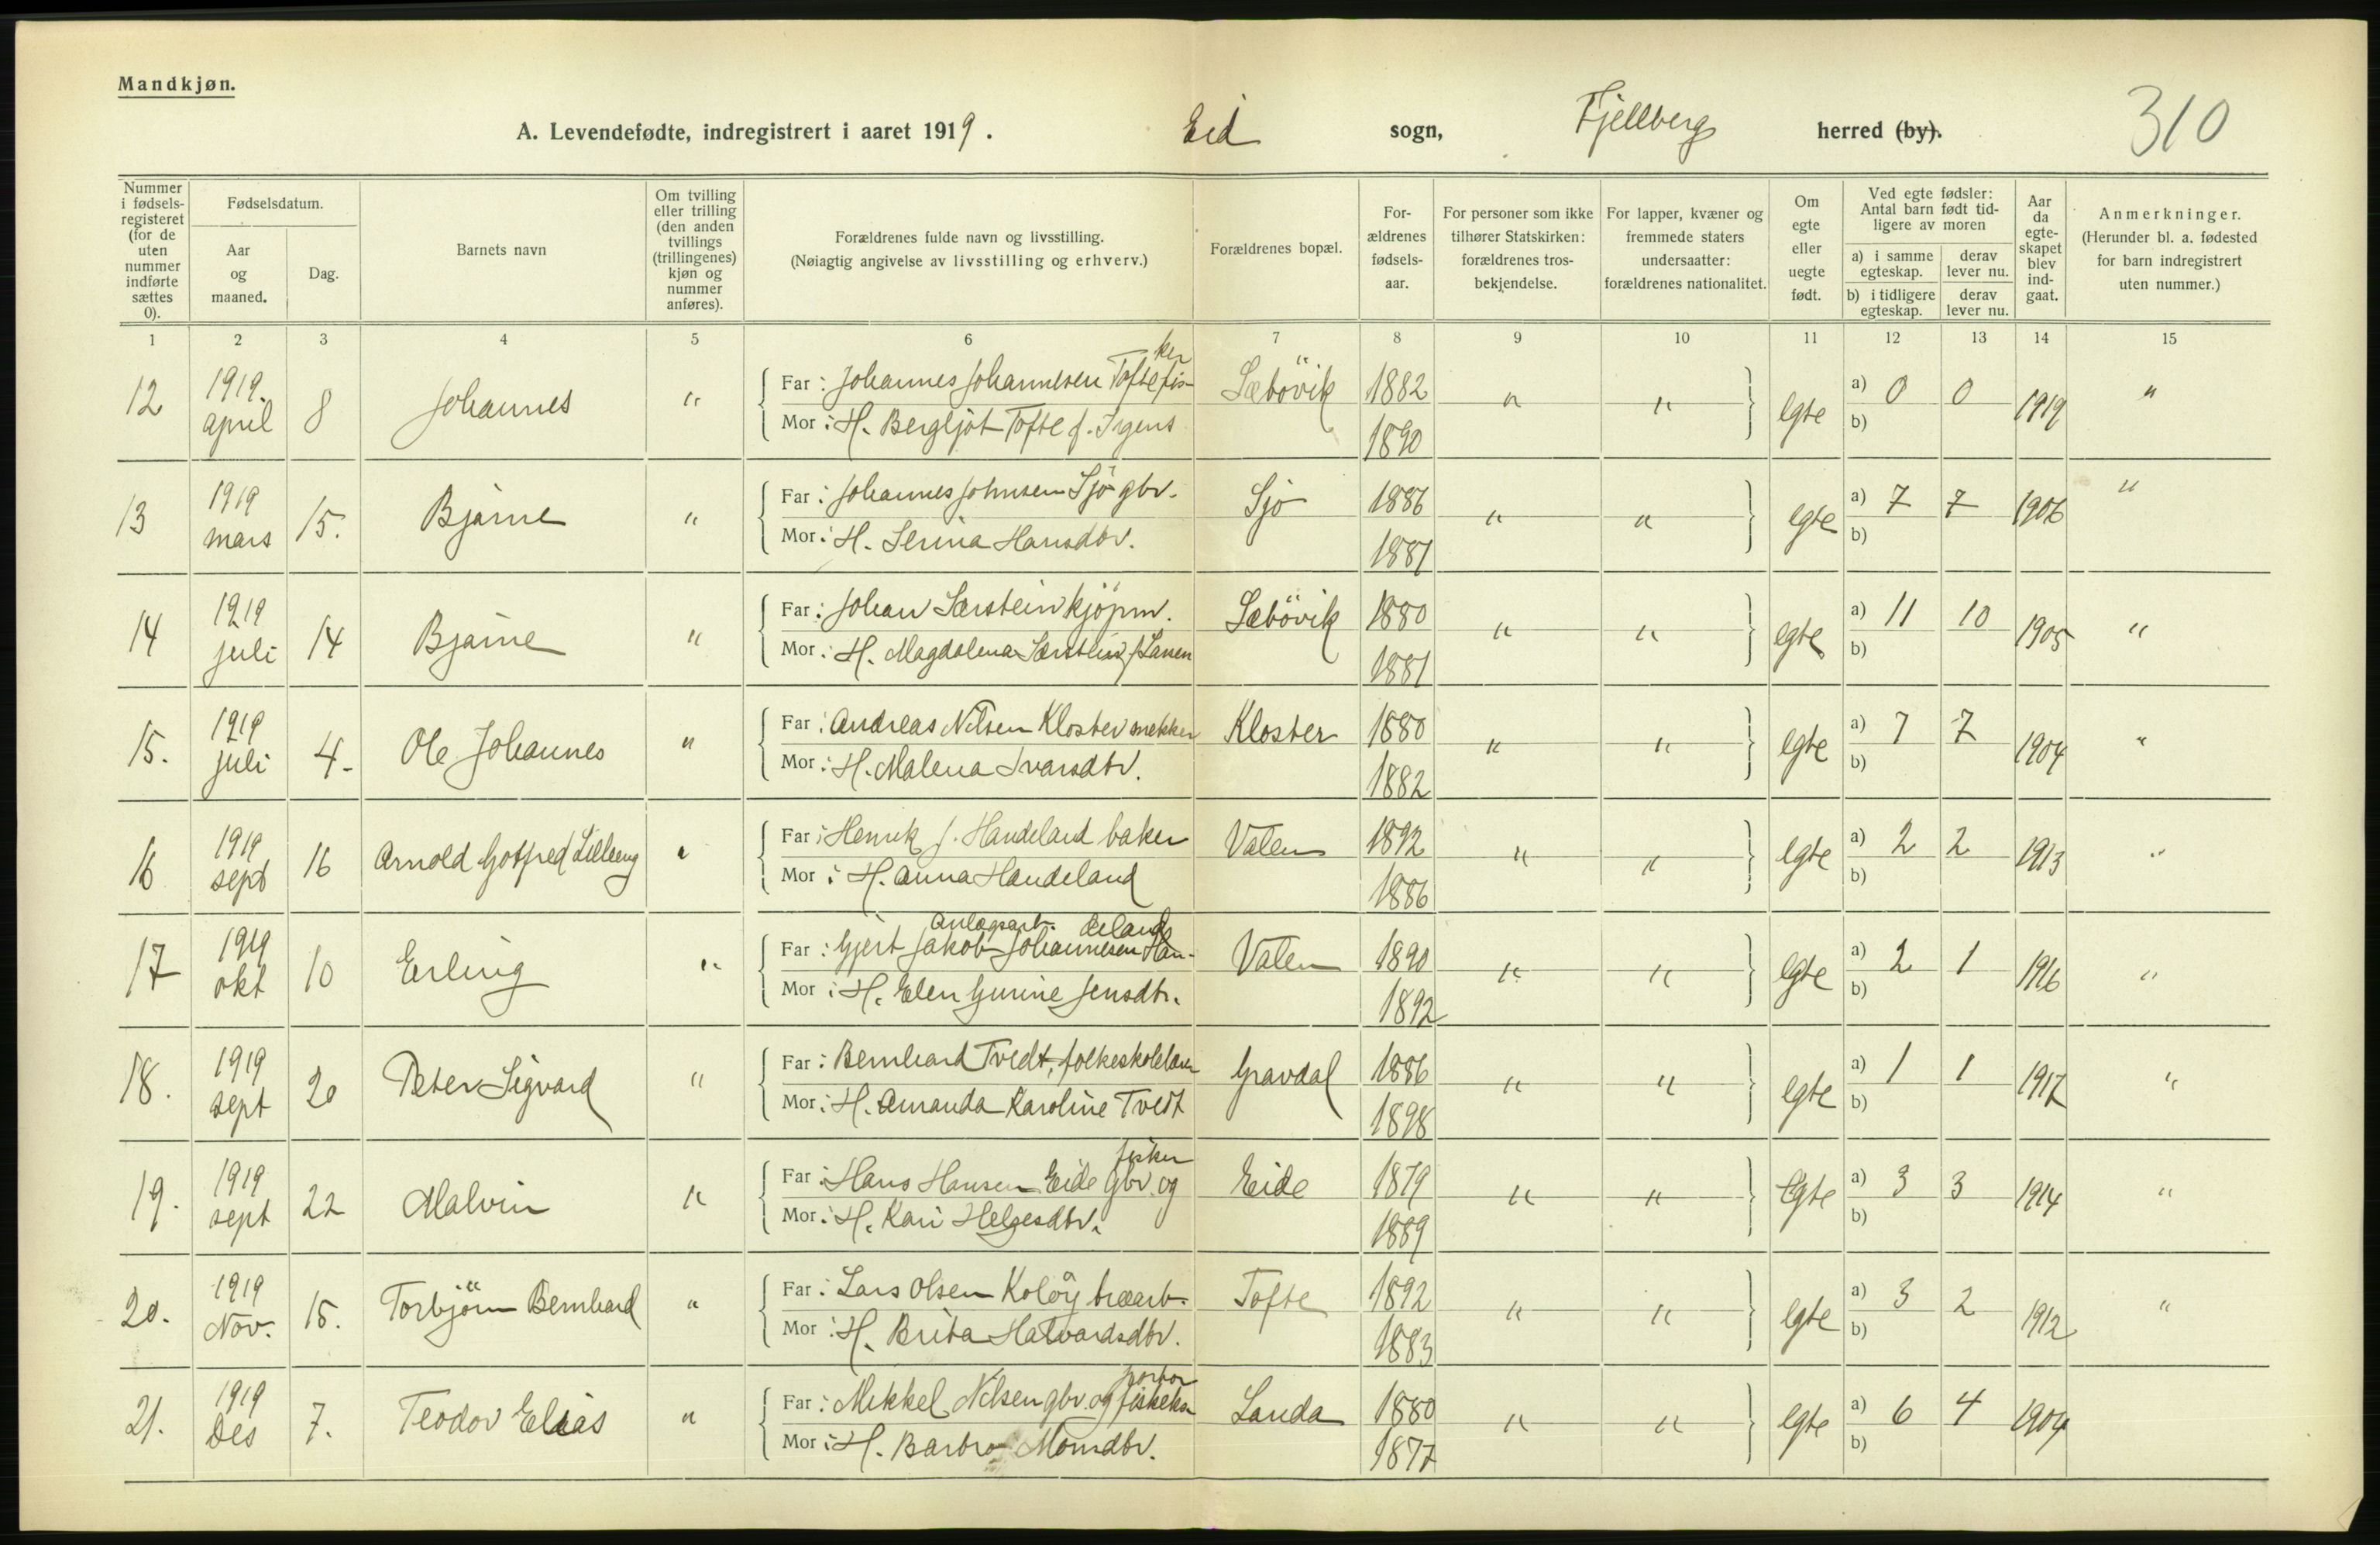 Mandkjøn.
A. Levendefødte, indregistrert i aaret 1919. Eid sogn, Fjellberg herred (by). 310
Nummer i fødselsregisteret (for de uten nummer indførte sættes 0).
Fødselsdatum.
Aar og maaned.
Dag.
Barnets navn
Om tvilling eller trilling (den anden tvillings (trillingenes) kjøn og nummer anføres).
Forældrenes fulde navn og livsstilling. (Nøiagtig angivelse av livsstilling og erhverv.)
Forældrenes bopæl.
Forældrenes fødselsaar.
For personer som ikke tilhører Statskirken: forældrenes trosbekjendelse.
For lapper, kvæner og fremmede staters undersaatter: forældrenes nationalitet.
Om egte eller uegte født.
Ved egte fødsler: Antal barn født tidligere av moren
a) i samme egteskap.
derav lever nu.
b) i tidligere egteskap.
derav lever nu.
Aar da egteskapet blev indgaat.
Anmerkninger. (Herunder bl. a. fødested for barn indregistrert uten nummer.)
1 2 3 4 5 6 7 8 9 10 11 12 13 14 15
12 1919. april 8 Johannes " Far: Johannes Johannesen Tofte fisker Sæbövik 1882 " " egte a) 0 0 1919 "
Mor: H. Bergljot Tofte f. Irgens 1890 b)
13 1919 mars 15. Bjarne " Far: Johannes Johnsen Sjo gbr. Sjo 1886 " " egte a) 7 7 1906 "
Mor: H. Serina Hansdtr. 1881 b)
14 1919 juli 14 Bjarne " Far: Johan Særstein kjöpm. Sæbövik 1880 " " egte a) 11 10 1905 "
Mor: H. Magdalena Særstein f. 1881 b)
15. 1919 juli 4- Ole Johannes " Far: Andreas Nilsen Kloster snekker Kloster 1880 " " egte a) 7 7 1904 "
Mor: H. Malena Ivarsdtr. 1882 b)
16 1919 sept 16 Arnold Gotfred Lilleeng " Far: Henrik J. Handeland baker Valen 1892 " " egte a) 2 2 1913 "
Mor: H. Anna Handeland 1886 b)
17 1919 okt 10 Erling " Far: Gjert Jakob Johannesen Handeland anlagsarb. Valen 1890 " " egte a) 2 1 1916 "
Mor: H. Elen Gurine Jensdtr. 1892 b)
18. 1919 sept 20 Peter Sigvard " Far: Bernhard Tvedt, folkeskolelærer Gravdal 1886 " " egte a) 1 1 1917 "
Mor: H. Amanda Karoline Tvedt 1898 b)
19. 1919 sept 22 Malvin " Far: Hans Hansen Eide gbr. og fisker Eide 1879 " " Egte a) 3 3 1914 "
Mor: H. Kari Helgesdtr. 1889 b)
20. 1919 Nov. 15. Torbjörn Bernhard " Far: Lars Olsen Tofte 1892 " " egte a) 3 2 1912 "
Mor: H. Brita Halvardsdtr. 1883 b)
21. 1919 Des 7. Teodor Elias " Far: Mikkel Nilsen gbr. og Landa 1880 " " egte a) 6 4 1904
Mor: H. Barbro Monsdtr. 1877 b)